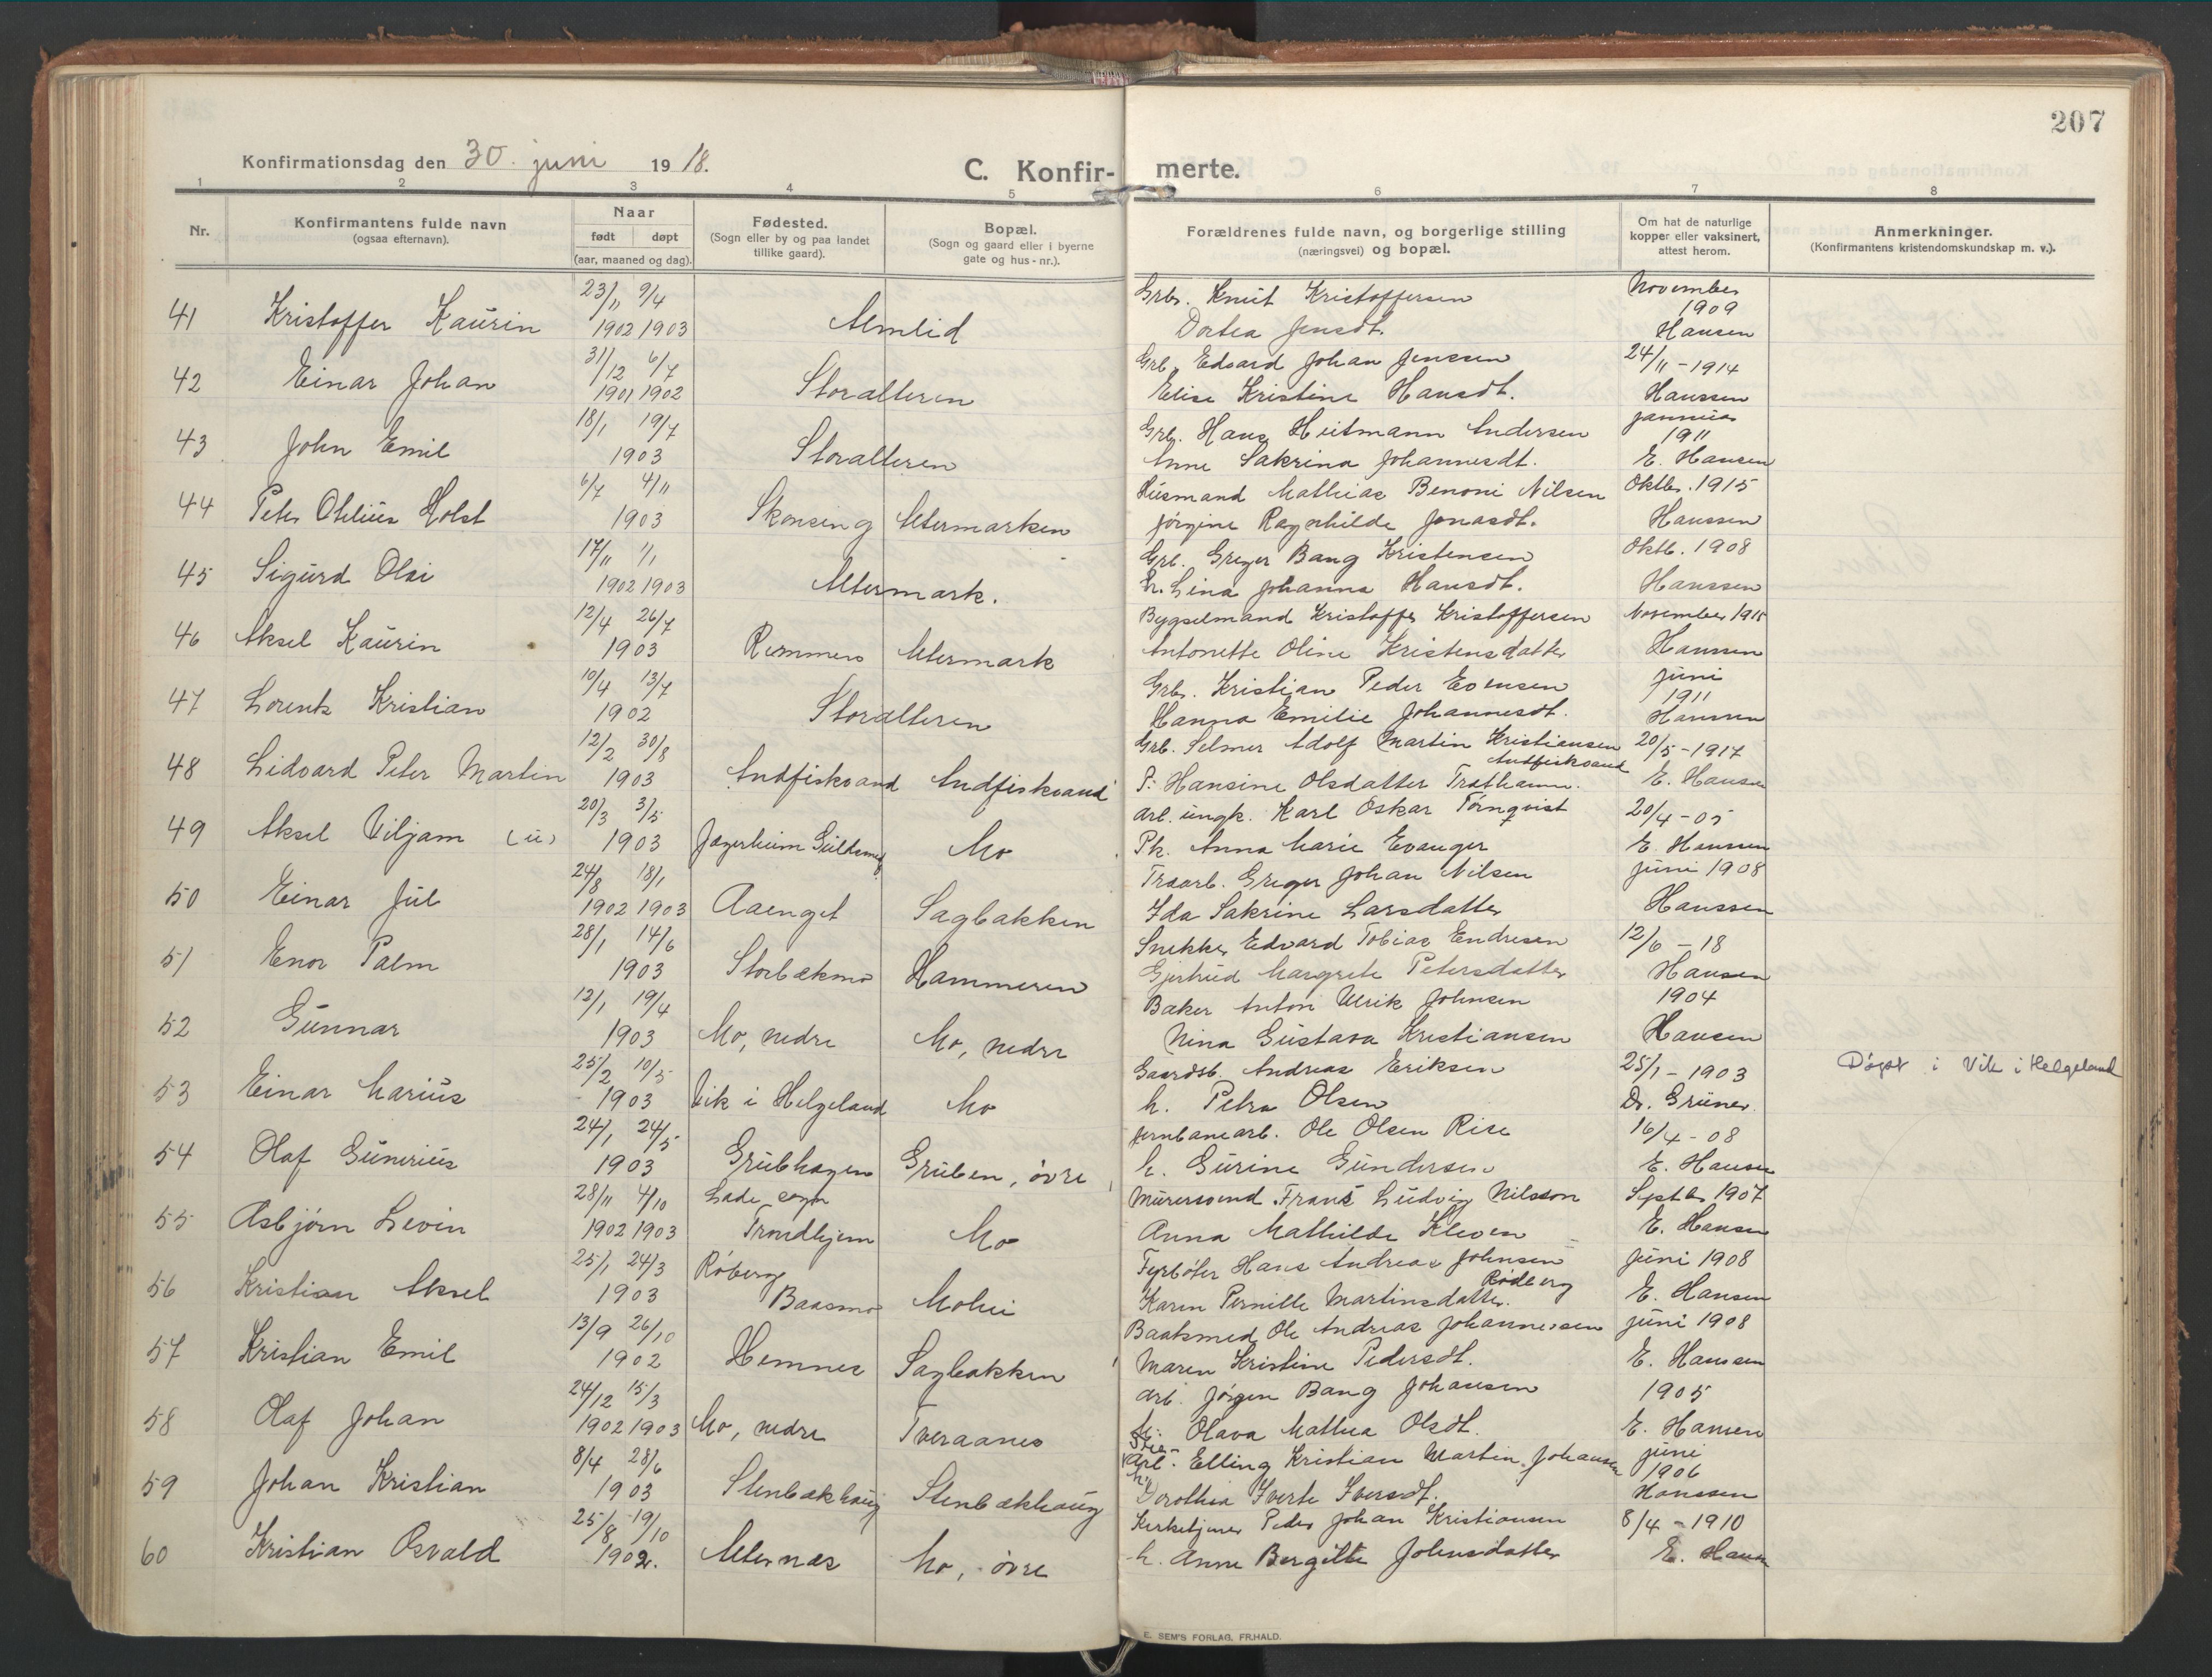 207
Konfirmationsdag den 30. juni 1918.
C. Konfir-merte.
1 2 3 4 5 6 7 8
Nr.
Konfirmantens fulde navn
(ogsaa efternavn).
Naar
født døpt
(aar, maaned og dag).
Fødested.
(Sogn eller by og paa landet
tillike gaard).
Bopæl.
(Sogn og gaard eller i byerne
gate og hus-nr.).
Forældrenes fulde navn, og borgerlige stilling
(næringsvei) og bopæl.
Om hat de naturlige
kopper eller vaksinert,
attest herom.
Anmerkninger.
(Konfirmantens kristendomskundskap m. v.).
41 Kristoffer Kaurin 23/11 1902 9/4 1903 Almlid
Grbr. Knut Kristoffersen
Dortea Jensdt.
November
1909
Hansen
42 Einar Johan 31/12 1901 6/7 1902 Storalteren
Grb. Edvard Johan Jenssen
Elise Kristine Hansdt.
24/11-1914
Hanssen
43 John Emil 18/1 19/7 1903 Storalteren
Grb. Hans Heitmann Andersen
Anne Sakrina Johannesdt.
januar
1911
E. Hansen
44 Peter Otelius Holst 6/7 4/11 1903 Skonseng Altermarken
Husmand Mathias Benoni Nilsen
Jørgine Ragnhilde Jonasdt.
Oktbr. 1915
Hanssen
45 Sigurd Olai 17/11 1902 1/1 1903 Altermark.
Grb. Greger Bang Kristensen
h. Lina Johanna Hansdt.
Oktb. 1908
Hanssen
46 Aksel Kaurin 12/4 26/7 1903 Remmen Altermark
Bygselmand Kristoffer Kristoffersen
Antonette Oline Kristensdatter
November 1915
Hanssen
47 Lorents Kristian 10/4 13/7 1902 Storalteren
Grb. Kristian Peder Evensen
Hanna Emilie Johannesdt.
juni
1911
Hanssen
48 Lidvard Peter Martin 12/2 30/8 1903 Andfiskvand Andfiskvand
Grb. Selmer Adolf Martin Kristiansen
Andfiskvand
P. Hansine Olsdatter
20/5-1917
E. Hansen
49 Aksel Viljam (u) 20/3 3/5 1903 Jægerheim Guldsmed Mo
arb. ungk. Karl Oskar Törnqvist
Pk. Anna Marie Evanger
20/4-05
E. Hanssen
50 Einar Jul 24/8 1902 18/1 1903 Aaenget Sagbakken
Traarb. Greger Johan Nilsen
Ida Sakrine Larsdatter
juni 1908
Hanssen
51 Enor Palm 28/1 14/6 1903 Storbækmo Hammeren
Snekker Edvard Tobias Endresen
Gjertrud Margrete Petersdatter
12/6-18
Hansen
52 Gunnar 12/1 19/4 1903 Mo, nedre Mo, nedre
Baker Anton Ulrik Johnsen
Nina Gustava Kristiansen
1904
Hansen
53 Einar Marius 25/2 10/5 1903 Vik i Helgeland Mo
Gaardsb. Andreas Eriksen
h. Petra Olsen
25/1-1903
Dr. Grüner.
Døpt i Vik i Helgeland
54 Olaf Gunerius 24/1 24/5 1903 Grubhagen Gruben, øvre
Jernbanearb. Ole Olsen Rise
h. Gurine Gundersen
16/4-08
E. Hansen
55 Asbjørn Levin 28/11 1902 4/10 1903 Lade sogn Trondhjem Mo
Murersvend Frans Ludvig Nilsson
Anna Mathilde Kleven
Septbr 1907
E. Hansen
56 Kristian Aksel 25/1 24/3 1903 Røberg Baasmo Mohei
Fyrbøter Hans Andreas Johnsen
Rødberg
Karen Pernille Martinsdatter.
juni 1908
E. Hansen
57 Kristian Emil 13/9 26/10 1902 Hemnes Sagbakken
Baatsmed Ole Andreas Johannessen
Maren Kristine Pedersdt.
juni 1908
E. Hanssen
58 Olaf Johan 24/12 1902 15/3 1903 Mo, nedre Tveraanes
arb. Jørgen Bang Johansen
h. Olava Mathea Olsdt.
1905
E. Hansen
59 Johan Kristian 8/4 28/6 1903 Stenbækhaug Stenbækhaug
arb. Elling Kristian Martin Johansen
h. Dorothea Iverte Iversdt.
juni
1906
Hanssen
60 Kristian Osvald 25/8 19/10 1902. Alternæs Mo, øvre
Kirketjener Peder Johan Kristiansen
h. Anne Bergitte Johnsdatter
8/4-1910
E. Hansen
E. SEM'S FORLAG, FR.HALD.